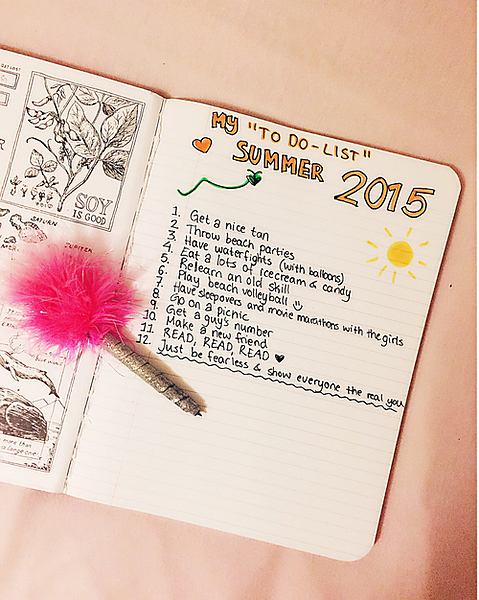 GET LOST
SOY
IS GOOD
SATURN
JUPITER
more than
a large one
MY "TO DO-LIST"
SUMMER 2015
1. Get a nice tan
2. Throw beach parties
3. Have waterfights (with balloons)
4. Eat a lots of icecream & candy
5. Relearn an old skill
6. Play beach volleyball
7. Have sleepovers and movie marathons with the girls
8. Go on a picnic
9. Get a guy's number
10. Make a new friend
11. READ, READ, READ ♥
12. Just be fearless & show everyone the real you